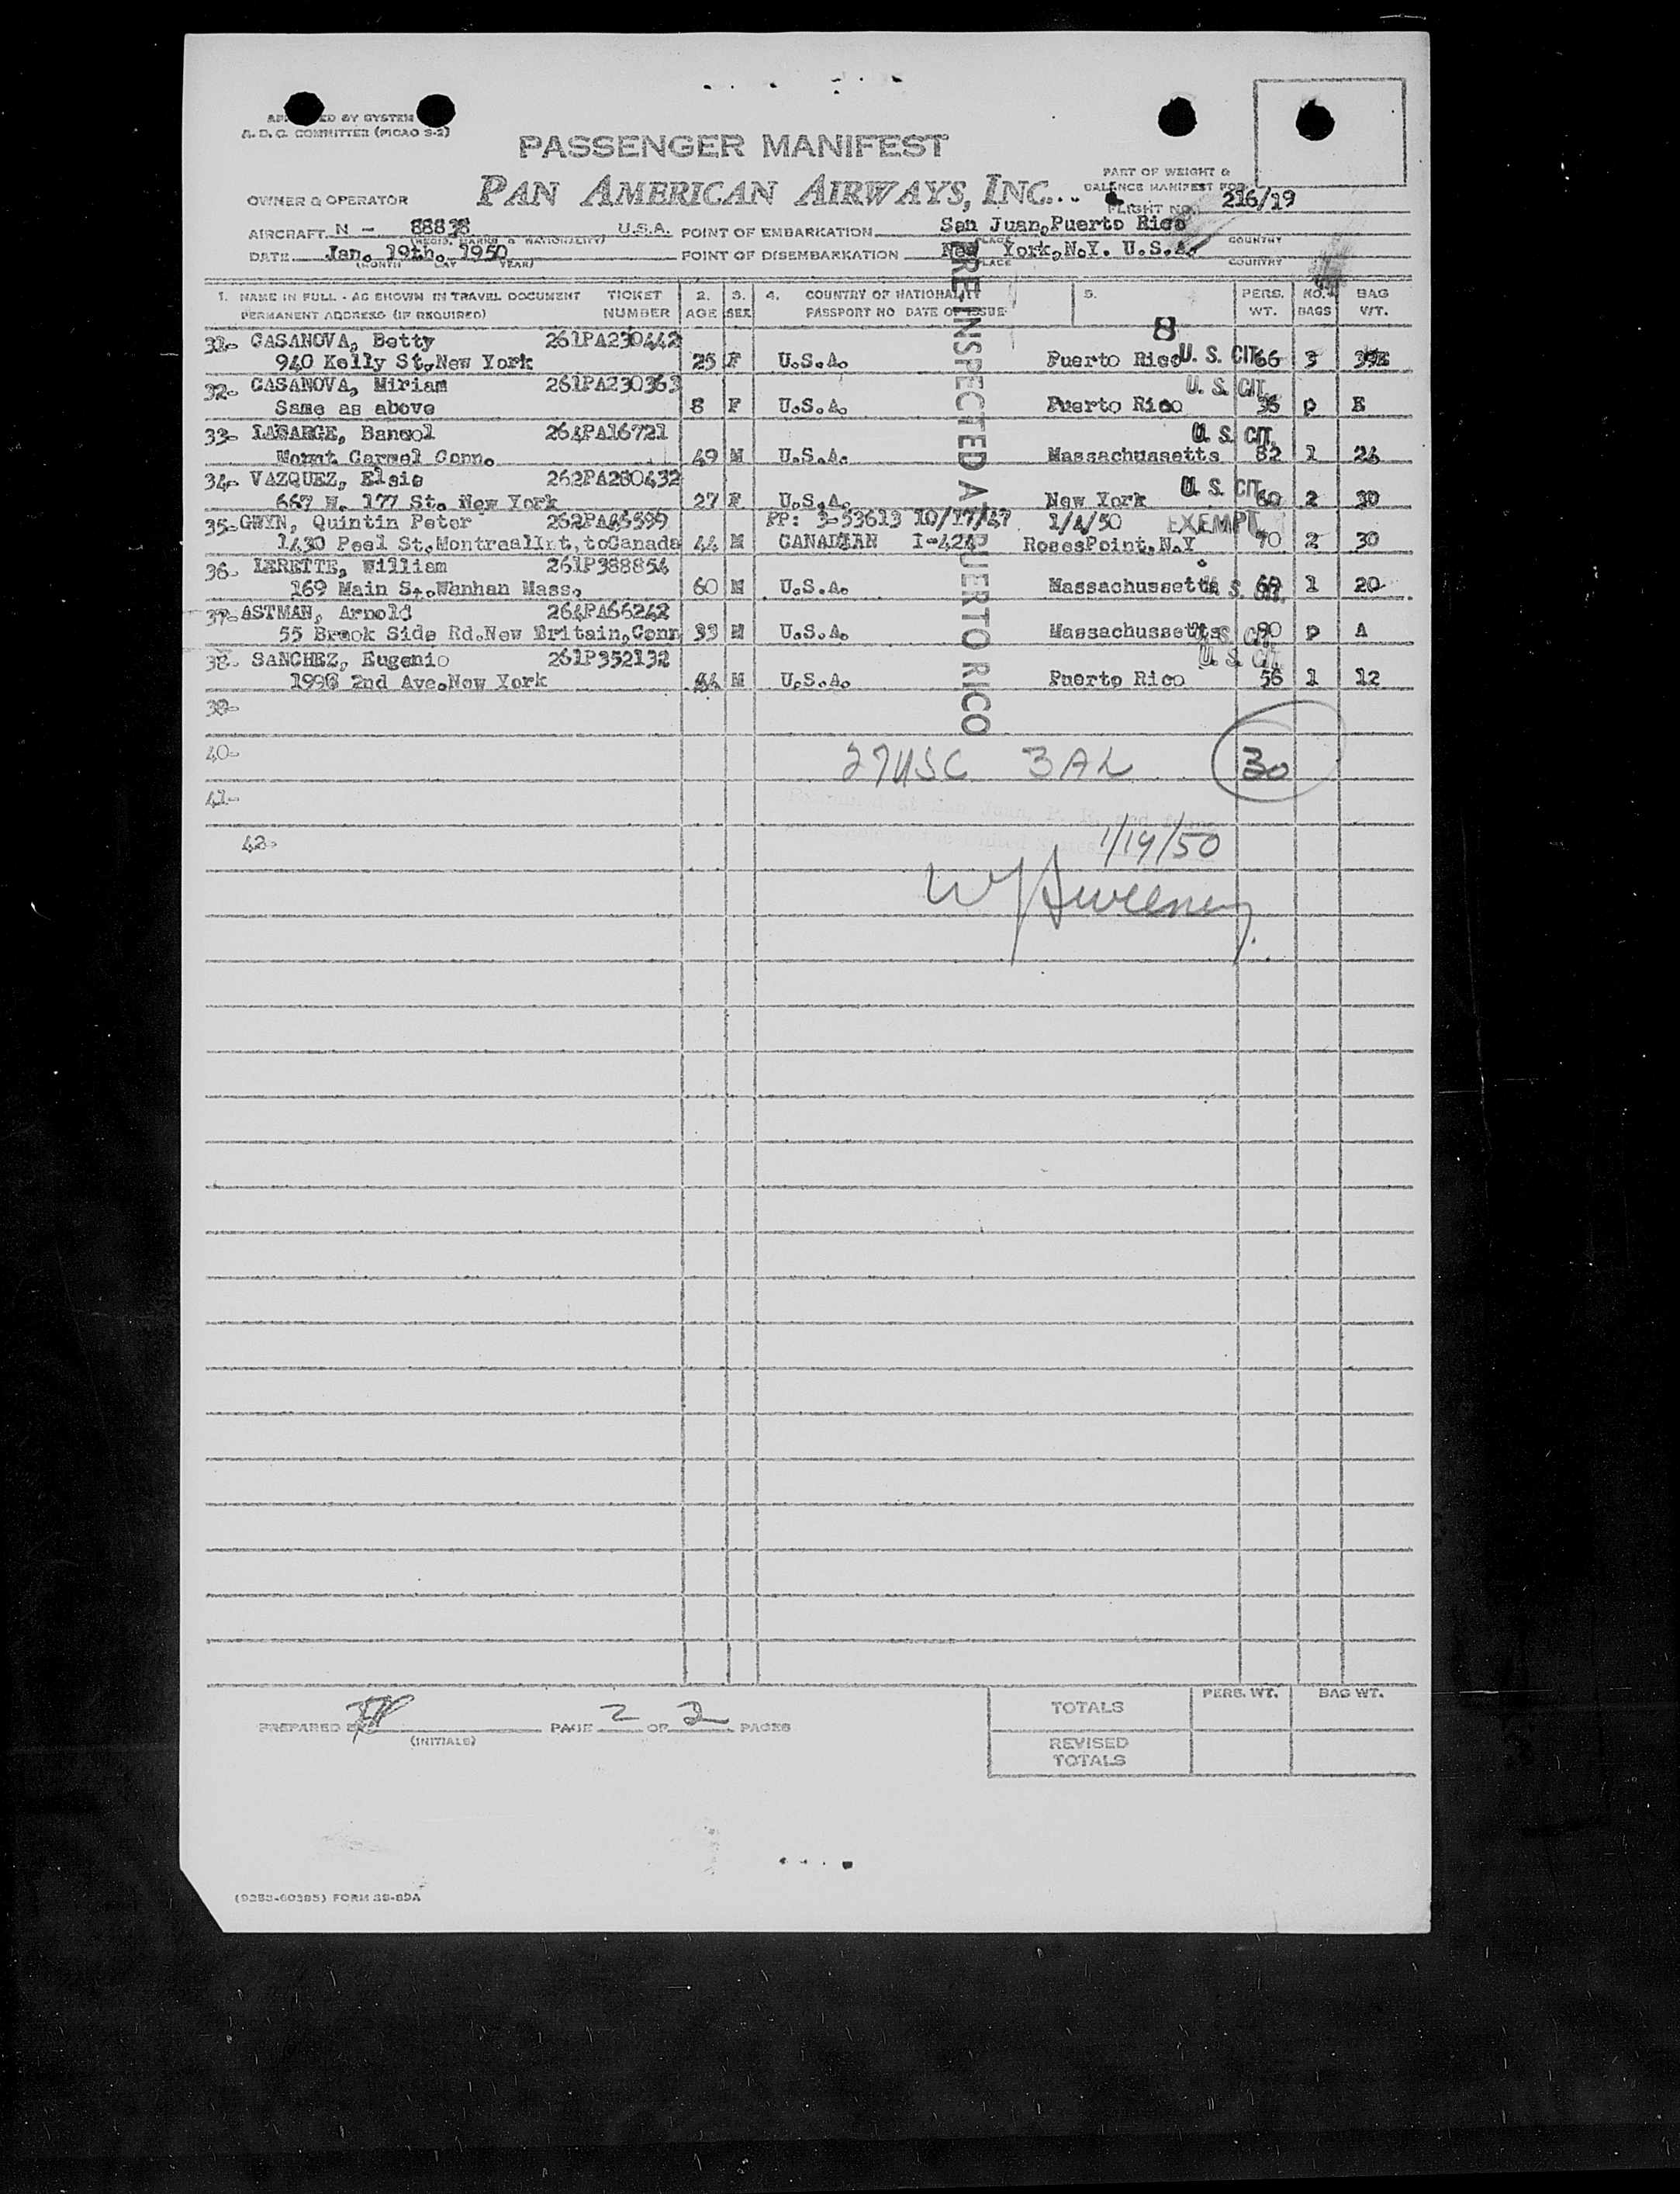 AP ED BY SYSTEM
A. D. C. COMMITTEE (PICAO S-2)
PASSENGER MANIFEST
PART OF WEIGHT &
BALANCE MANIFEST FOR
OWNER & OPERATOR PAN AMERICAN AIRWAYS, INC.
FLIGHT NO. 216/19
AIRCRAFT N - 88838 U.S.A. POINT OF EMBARKATION San Juan,Puerto Rico
(REGIS. MARKS & NATIONALITY) PLACE COUNTRY
DATE Jan. 19th. 1950 POINT OF DISEMBARKATION New York,N.Y. U.S.A.
(MONTH DAY YEAR) PLACE COUNTRY
1. NAME IN FULL - AS SHOWN IN TRAVEL DOCUMENT TICKET 2. 3. 4. COUNTRY OF NATIONALITY 5. PERS. NO. BAG
PERMANENT ADDRESS (IF REQUIRED) NUMBER AGE SEX PASSPORT NO DATE OF ISSUE WT. BAGS WT.
8
31- CASANOVA, Betty 261PA230442
940 Kelly St.New York 25 F U.S.A. Puerto Rico U. S. CIT. 66 3
32- CASANOVA, Miriam 261PA230363 U. S. CIT.
Same as above 8 F U.S.A. Puerto Rico 36 p E
33- LABARGE, Bancol 264PA16721 U. S. CIT.
Mount Carmel Conn. 49 M U.S.A. Massachussetts 82 1 24
34- VAZQUEZ, Elsie 262PA280432 U. S. CIT.
667 W. 177 St. New York 27 F U.S.A. New York 60 2 30
35-GWYN, Quintin Peter 262PA85599 PP: 3-53613 10/17/47 1/4/50 EXEMPT
1430 Peel St.MontrealInt,toCanada 44 M CANADIAN I-424 RosesPoint,N.Y 70 2 30
36- LERETTE, William 261P388854
169 Main St.Wanhan Mass. 60 M U.S.A. Massachussetts U. S. CIT. 69 1 20
37-ASTMAN, Arnold 264PA66242
55 Brook Side Rd.New Britain,Conn 33 M U.S.A. Massachussetts U. S. CIT. 80 p A
38- SANCHEZ, Eugenio 261P352132 U. S. CIT.
1996 2nd Ave.New York 44 M U.S.A. Puerto Rico 56 1 12
PRE INSPECTED AT PUERTO RICO
39-
40- 27USC 3AL 30
41-
42- 1/19/50
WJSweeney
PREPARED BY PAGE 2 OF 2 PAGES
(INITIALS)
TOTALS PERS. WT. BAG WT.
REVISED
TOTALS
FORM